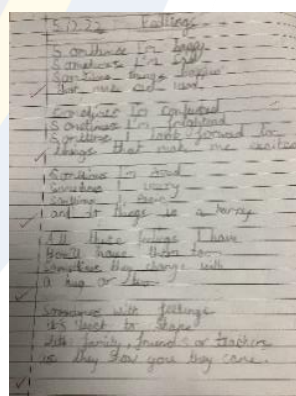 5.12.22 Feelings
Sometimes I'm happy
Sometimes I'm sad
Sometimes things happen
that make me
Sometimes I'm confused
Sometimes I'm frightened
Sometimes I look forward to
things that make me excited
Sometimes I'm
Sometimes I worry
Sometimes I
and do things in a hurry
All these feelings I have
You'll have them to
Sometimes they change with
a hug or two
Sometimes with feelings
it's best to share
with family, friends or teachers
so they show you they care.